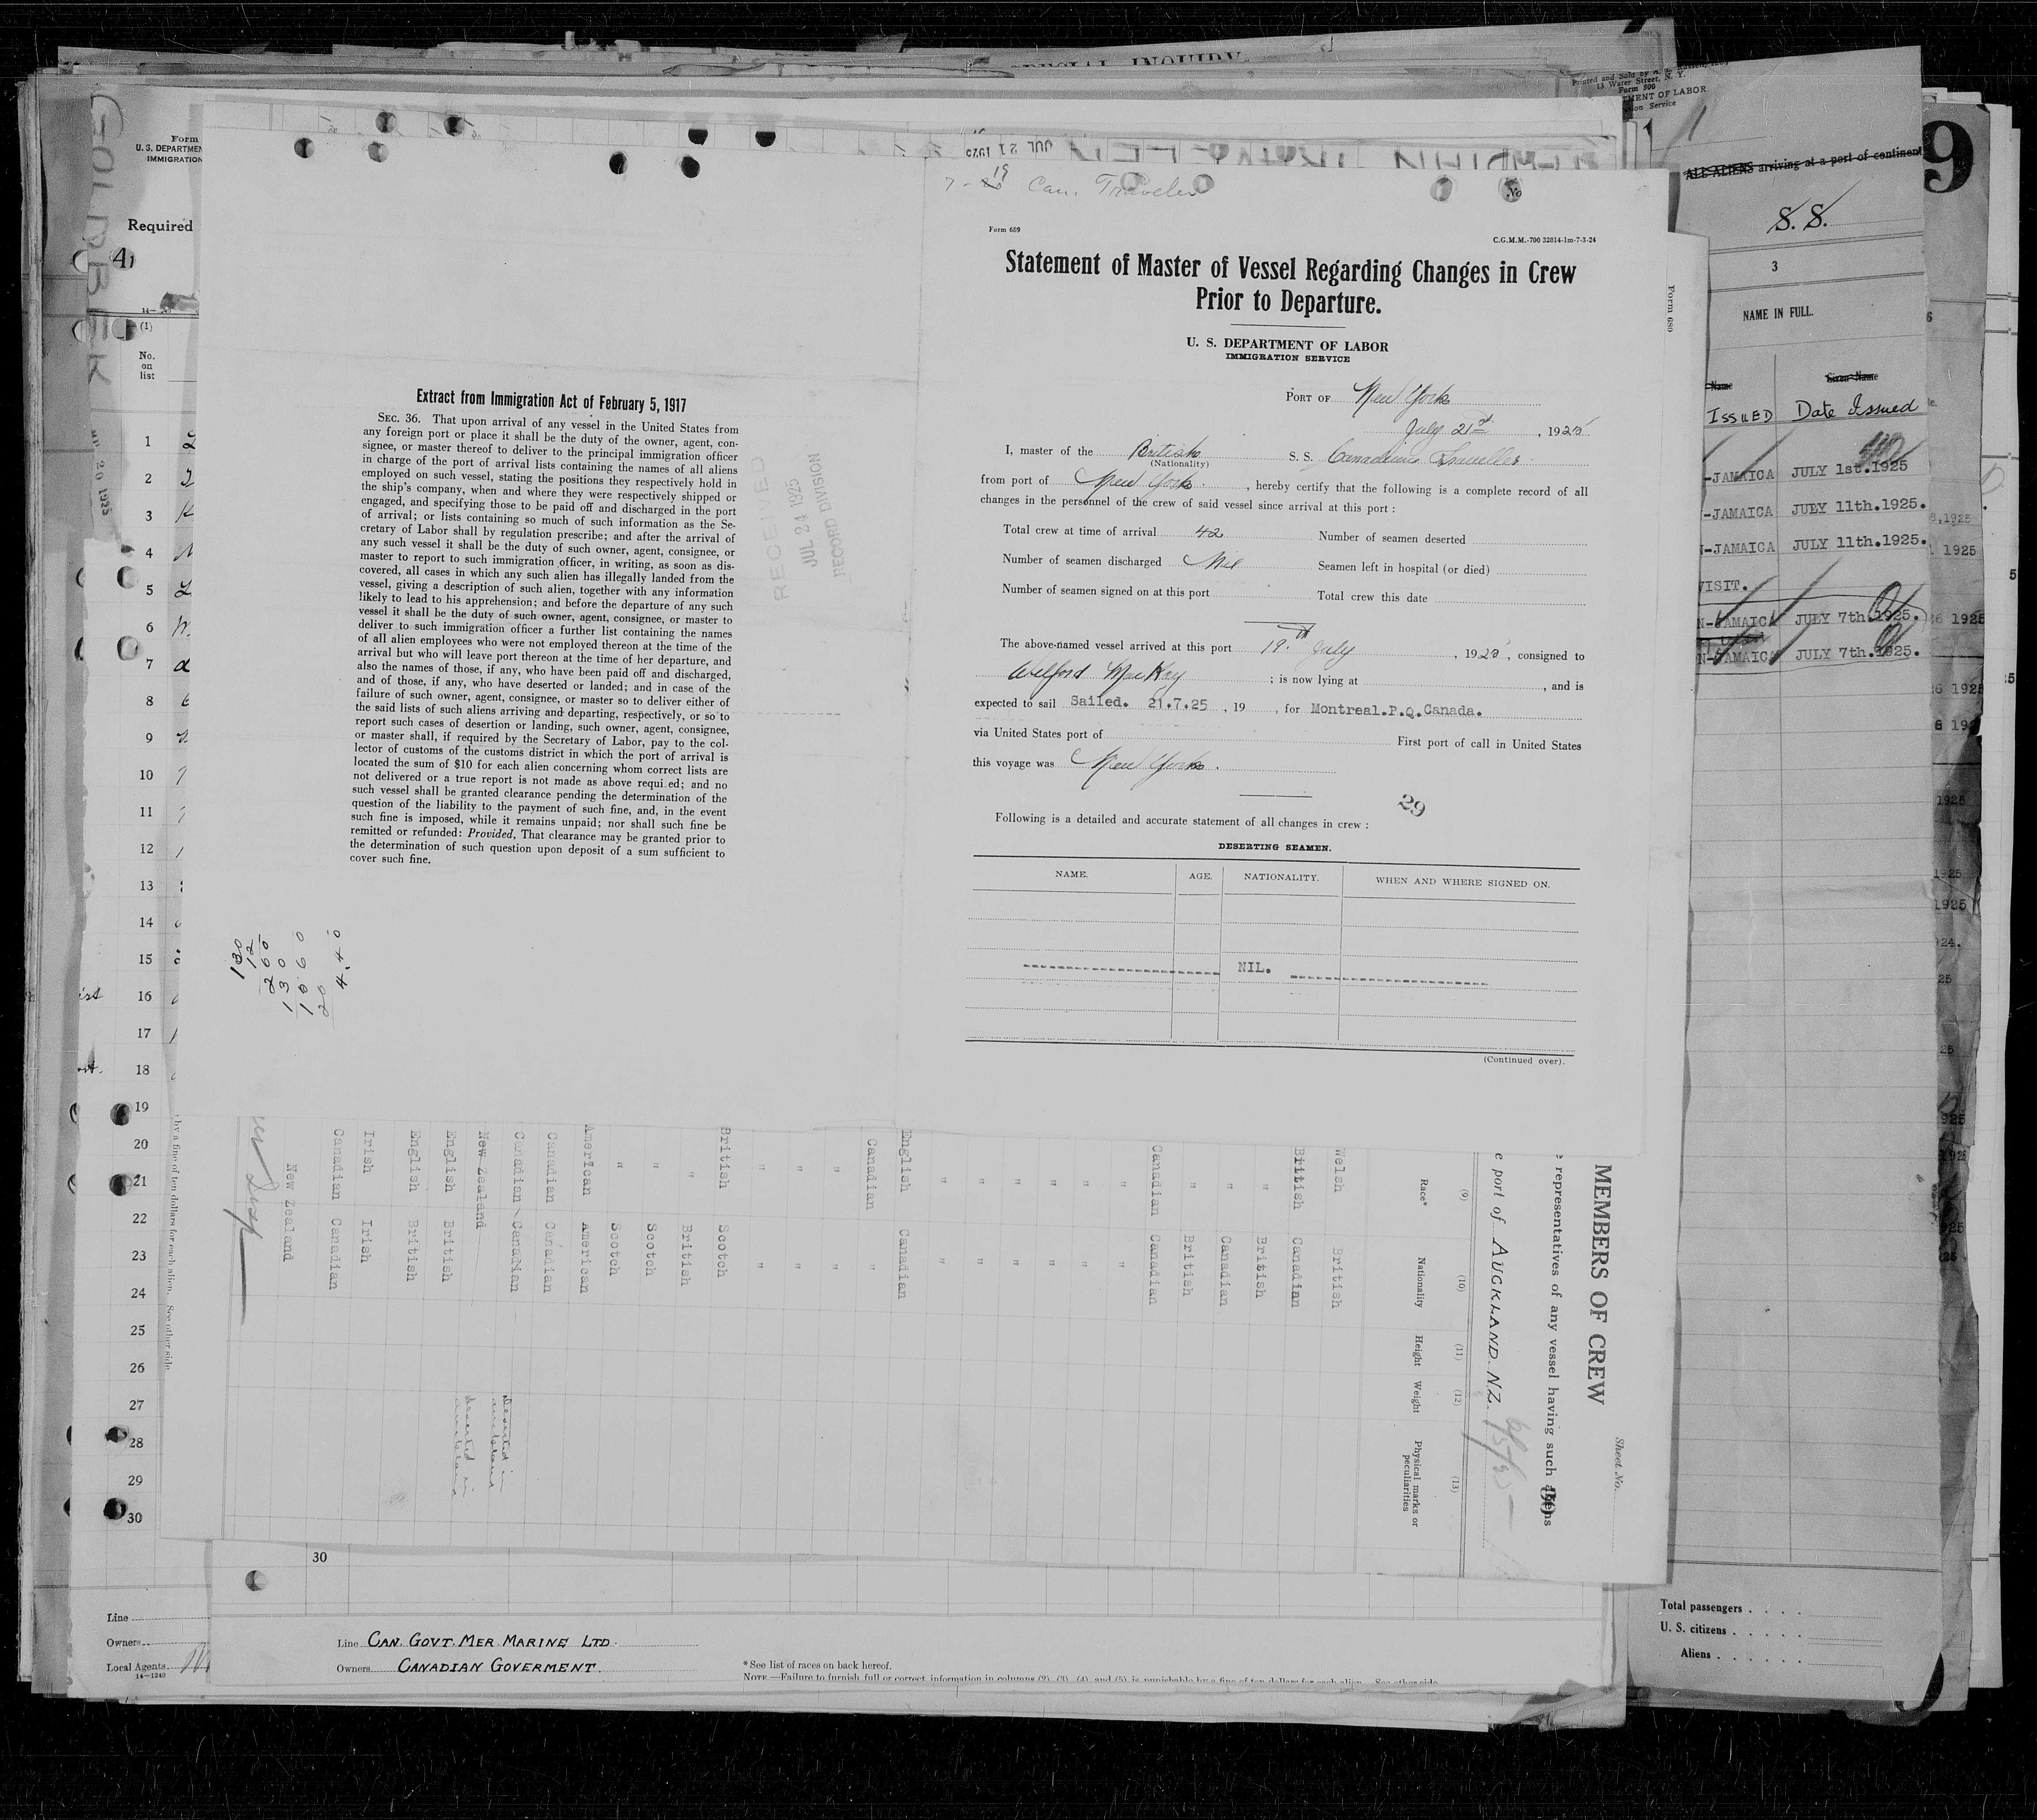 SPECIAL INQUIRY
Printed and Sold by
15 Water Street, N. Y.
Form 500
MENT OF LABOR
tion Service
9
ALL ALIENS arriving at a port of continent
S. S.
3
NAME IN FULL.
Name Given Name
ISSUED Date Issued
-JAMAICA JULY 1st.1925
-JAMAICA JULY 11th.1925.
N-JAMAICA JULY 11th.1925.
VISIT.
N-JAMAICA JULY 7th.1925.
N-JAMAICA JULY 7th.1925.
Total passengers . . . .
U. S. citizens . . . . .
Aliens . . . . . .
GOLDBEK
Form
U. S. DEPARTMEN
IMMIGRATION
Required
41
(1)
No.
on
list
1
2
3
4
5
6
7
8
9
10
11
12
13
14
15
16
17
18
19
20
21
22
23
24
25
26
27
28
29
30
Line
Owners
Local Agents
14—1240
JUL 21 1925
7-19 Can. Traveler
No
Form 689
C.G.M.M.-700 32814-1m-7-3-24
Statement of Master of Vessel Regarding Changes in Crew
Prior to Departure.
U. S. DEPARTMENT OF LABOR
IMMIGRATION SERVICE
PORT OF New York
July 21st, 1925
I, master of the British S. S. Canadian Traveller
(Nationality)
from port of New York, hereby certify that the following is a complete record of all
changes in the personnel of the crew of said vessel since arrival at this port :
Total crew at time of arrival 42 Number of seamen deserted
Number of seamen discharged Nil Seamen left in hospital (or died)
Number of seamen signed on at this port Total crew this date
The above-named vessel arrived at this port 19th July, 1925, consigned to
Welford MacKay ; is now lying at , and is
expected to sail Sailed. 21.7.25 , 19 , for Montreal.P.Q.Canada.
via United States port of First port of call in United States
this voyage was New York.
29
Following is a detailed and accurate statement of all changes in crew :
DESERTING SEAMEN.
NAME. AGE. NATIONALITY. WHEN AND WHERE SIGNED ON.
NIL.
(Continued over).
Form 680
Extract from Immigration Act of February 5, 1917
SEC. 36. That upon arrival of any vessel in the United States from
any foreign port or place it shall be the duty of the owner, agent, con-
signee, or master thereof to deliver to the principal immigration officer
in charge of the port of arrival lists containing the names of all aliens
employed on such vessel, stating the positions they respectively hold in
the ship's company, when and where they were respectively shipped or
engaged, and specifying those to be paid off and discharged in the port
of arrival; or lists containing so much of such information as the Se-
cretary of Labor shall by regulation prescribe; and after the arrival of
any such vessel it shall be the duty of such owner, agent, consignee, or
master to report to such immigration officer, in writing, as soon as dis-
covered, all cases in which any such alien has illegally landed from the
vessel, giving a description of such alien, together with any information
likely to lead to his apprehension; and before the departure of any such
vessel it shall be the duty of such owner, agent, consignee, or master to
deliver to such immigration officer a further list containing the names
of all alien employees who were not employed thereon at the time of the
arrival but who will leave port thereon at the time of her departure, and
also the names of those, if any, who have been paid off and discharged,
and of those, if any, who have deserted or landed; and in case of the
failure of such owner, agent, consignee, or master so to deliver either of
the said lists of such aliens arriving and departing, respectively, or so to
report such cases of desertion or landing, such owner, agent, consignee,
or master shall, if required by the Secretary of Labor, pay to the col-
lector of customs of the customs district in which the port of arrival is
located the sum of $10 for each alien concerning whom correct lists are
not delivered or a true report is not made as above requi ed; and no
such vessel shall be granted clearance pending the determination of the
question of the liability to the payment of such fine, and, in the event
such fine is imposed, while it remains unpaid; nor shall such fine be
remitted or refunded: Provided, That clearance may be granted prior to
the determination of such question upon deposit of a sum sufficient to
cover such fine.
RECEIVED
JUL 24 1925
RECORD DIVISION
130
12
260
130
1560
20
4.40
MEMBERS OF CREW
Sheet No.
representatives of any vessel having such aliens
e port of AUCKLAND. N.Z.
(9) (10) (11) (12) (13)
Race* Nationality Height Weight Physical marks or peculiarities
Welsh British
British Canadian
" British
" Canadian
" British
Canadian Canadian
" "
" "
" "
" "
" "
" "
English Canadian
Canadian "
" "
" "
" "
British Scotch
" British
" Scotch
" Scotch
American American
Canadian Canadian
Canadian Canadian Deserted in Auckland
New Zealand
English British
English British
Irish Irish
Canadian Canadian
New Zealand
by a fine of ten dollars for each alien. See other side.
30
Line CAN. GOVT. MER. MARINE LTD.
Owners CANADIAN GOVERMENT.
*See list of races on back hereof.
NOTE.—Failure to furnish full or correct information in columns (2), (3), (4), and (5) is punishable by a fine of ten dollars for each alien. See other side.